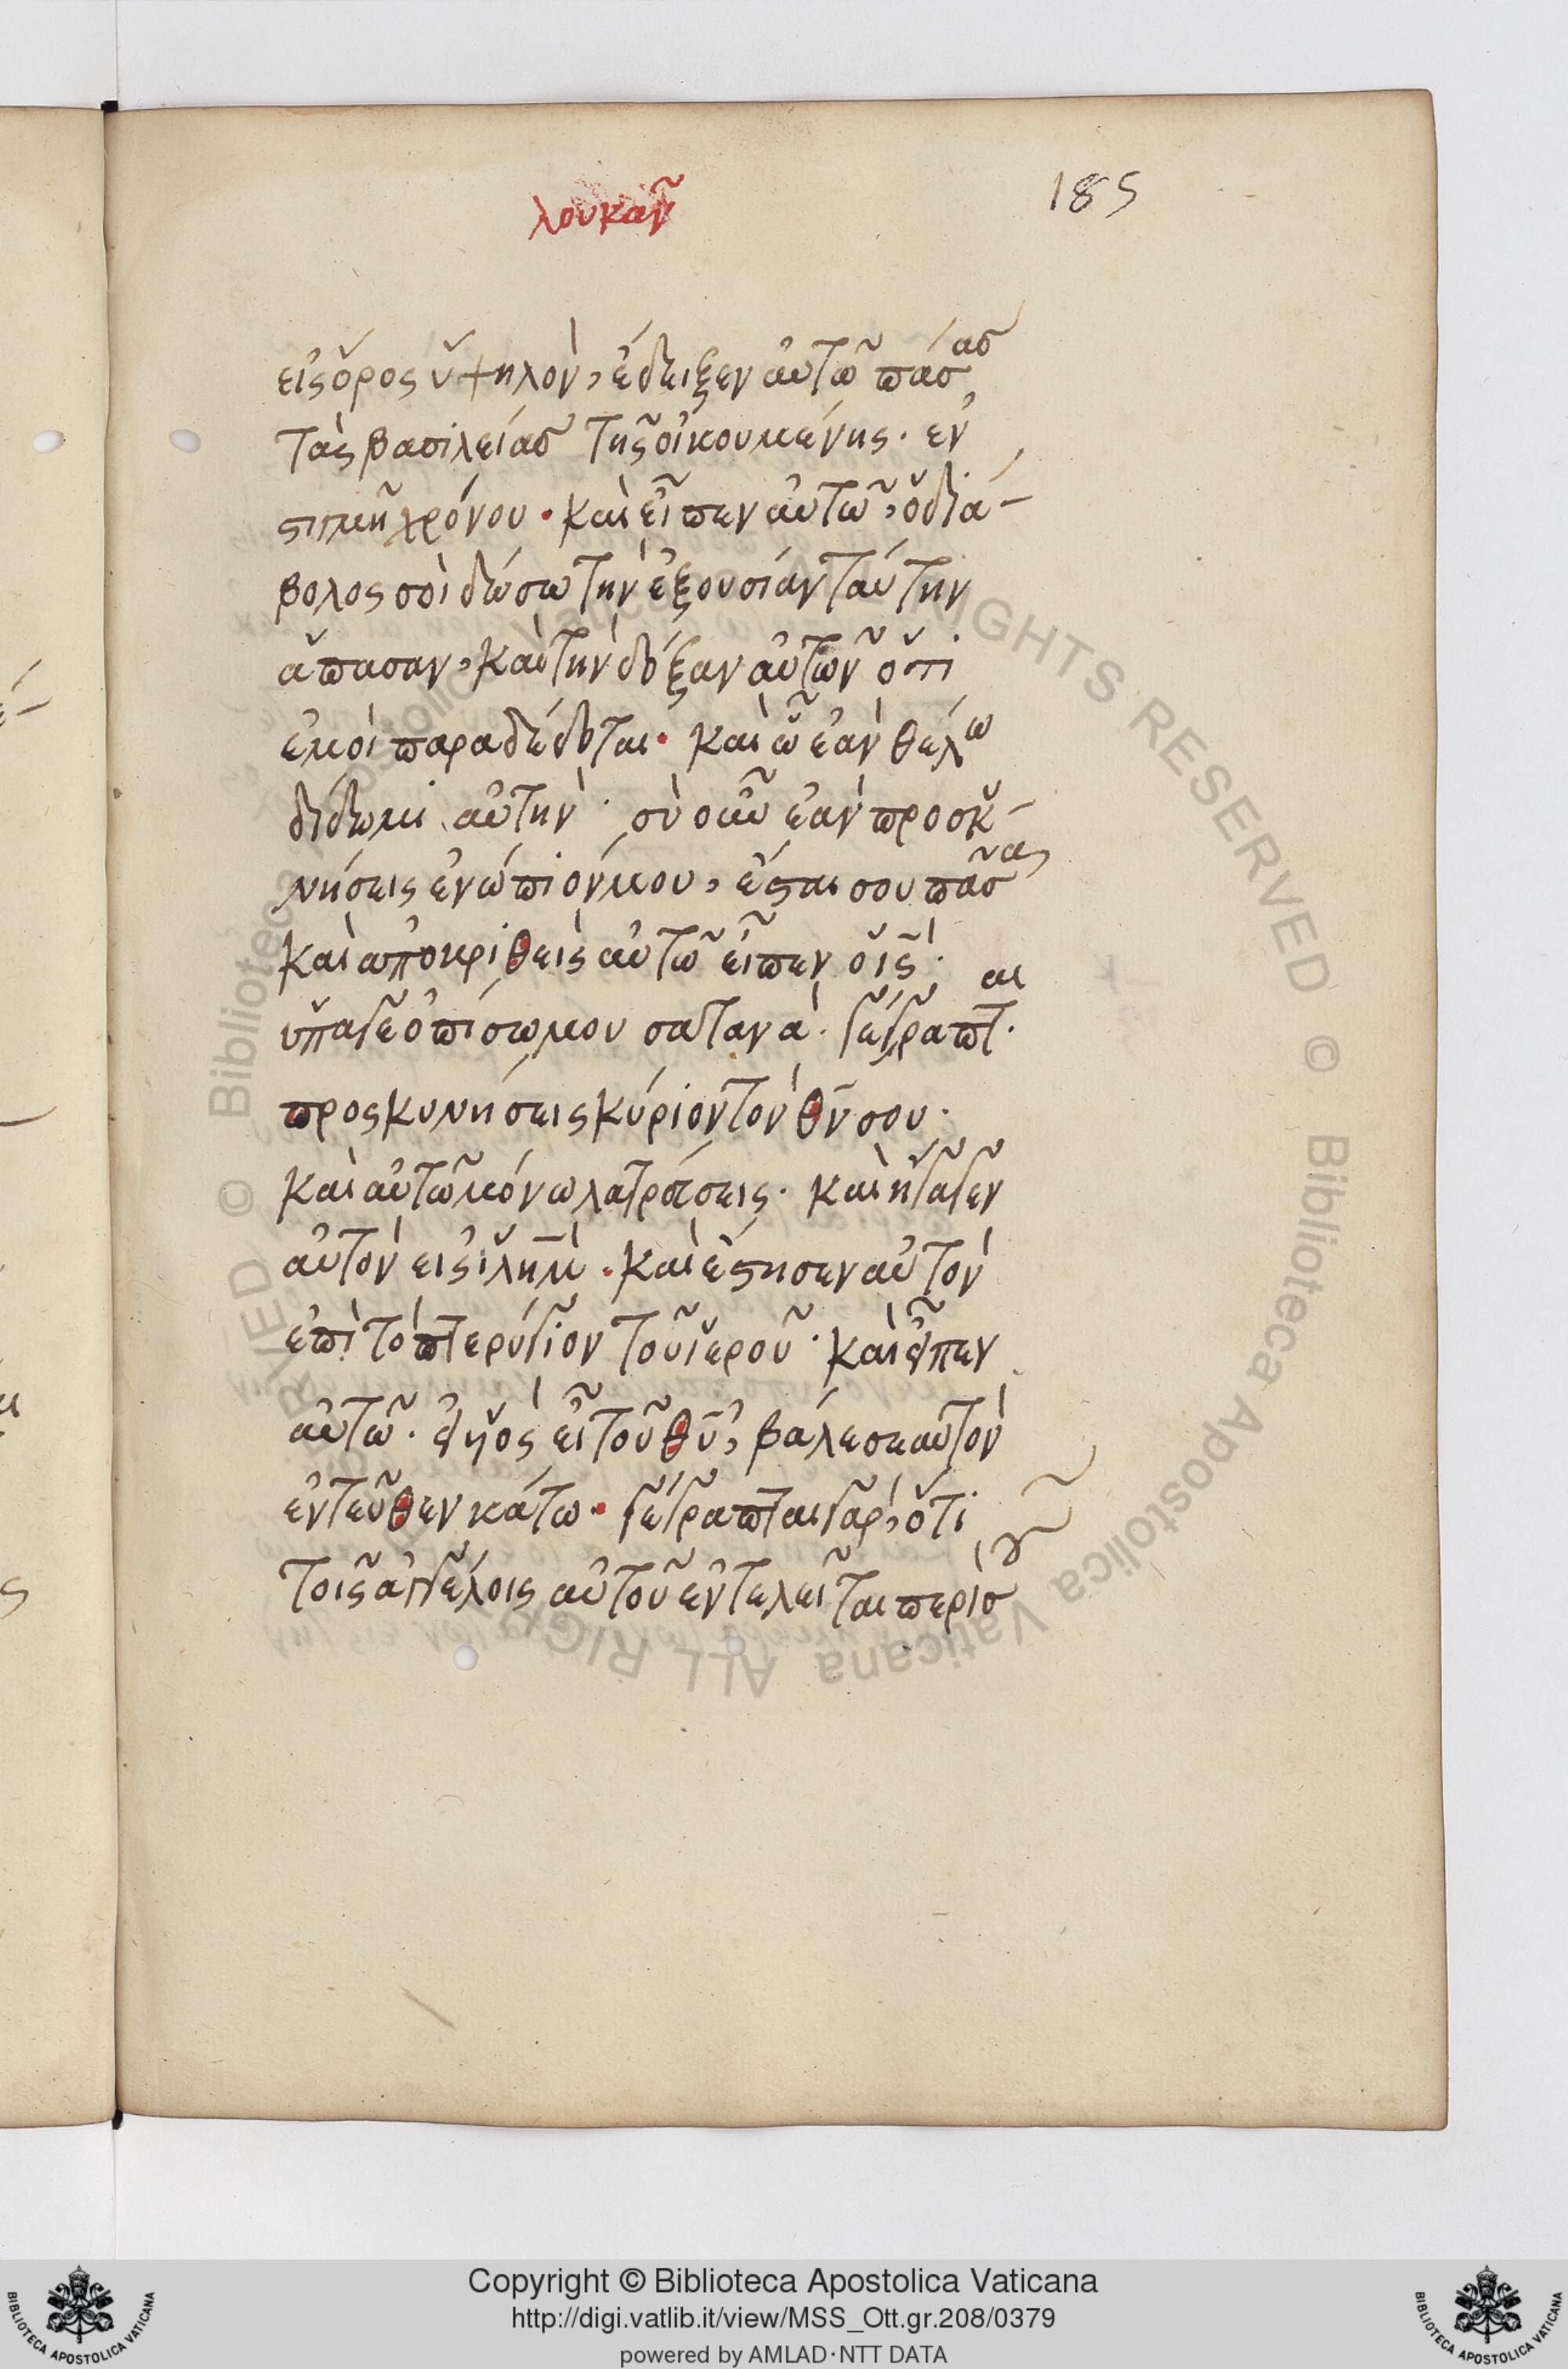 λουκαν
185
εἰς ὄρος ὑψηλὸν, ἔδειξεν αὐτῶ πάσας
τὰς βασιλείας τῆς οἰκουμένης. ἐν
στιγμῆ χρόνου. καὶ εἶπεν αὐτῶ, ὁ διά-
βολος σοὶ δώσω τὴν ἐξουσίαν ταύτην
ἅπασαν, καὶ τὴν δόξαν αὐτῶν ὅτι
ἐμοὶ παραδέδοται. καὶ ὧ ἐὰν θέλω
δίδωμι αὐτὴν. σὺ οὖν ἐὰν προσκυ-
νήσεις ἐνώπιόν μου, ἔσται σου πᾶσα
καὶ ἀποκριθεὶς αὐτῶ εἶπεν ὁ ι̅ς̅.
ὕπαγε ὀπίσω μου σατανᾶ. γέγραπται.
προσκυνήσεις κύριον τὸν θ̅ν̅ σου.
καὶ αὐτῶ μόνω λατρεύσεις. καὶ ἤγαγεν
αὐτὸν εἰς ἱλημ. καὶ ἔστησεν αὐτὸν
ἐπὶ τὸ πτερύγιον τοῦ ἱεροῦ. καὶ εἶπεν
αὐτῶ. εἰ υἱὸς εἶ τοῦ θ̅υ̅, βάλε σεαυτὸν
ἐντεῦθεν κάτω. γέγραπται γὰρ, ὅτι
τοῖς ἀγγέλοις αὐτοῦ ἐντελεῖται περὶ σοῦ
© Biblioteca Apostolica Vaticana ALL RIGHTS RESERVED
Copyright © Biblioteca Apostolica Vaticana
http://digi.vatlib.it/view/MSS_Ott.gr.208/0379
powered by AMLAD·NTT DATA
BIBLIOTECA APOSTOLICA VATICANA
BIBLIOTECA APOSTOLICA VATICANA